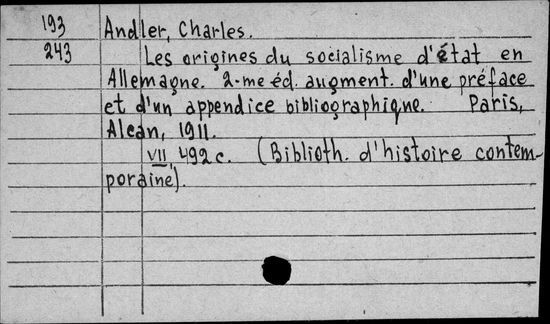 193 Andler, Charles.
243 Les origines du socialisme d'état en
Allemagne. 2-me éd. augment. d'une préface
et d'un appendice bibliographique. Paris,
Alcan, 1911.
VII, 492 c. (Biblioth. d'histoire contem-
poraine).